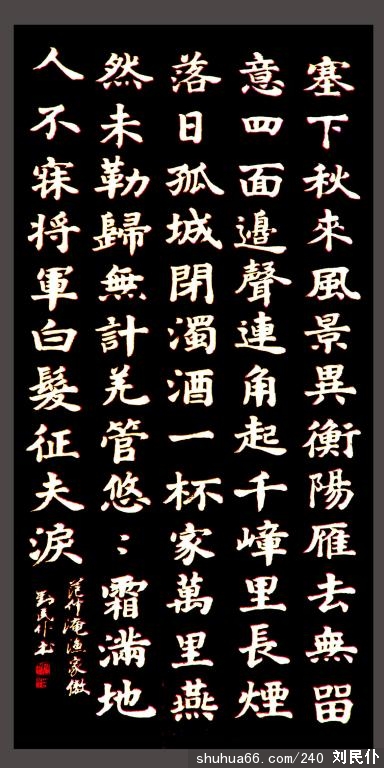 塞下秋來風景異衡陽雁去無留
意四面邊聲連角起千嶂里長煙
落日孤城閉濁酒一杯家萬里燕
然未勒歸無計羌管悠:霜滿地
人不寐将軍白髮征夫淚
范仲淹漁家傲
劉民仆书
shuhua66.com/240 刘民仆